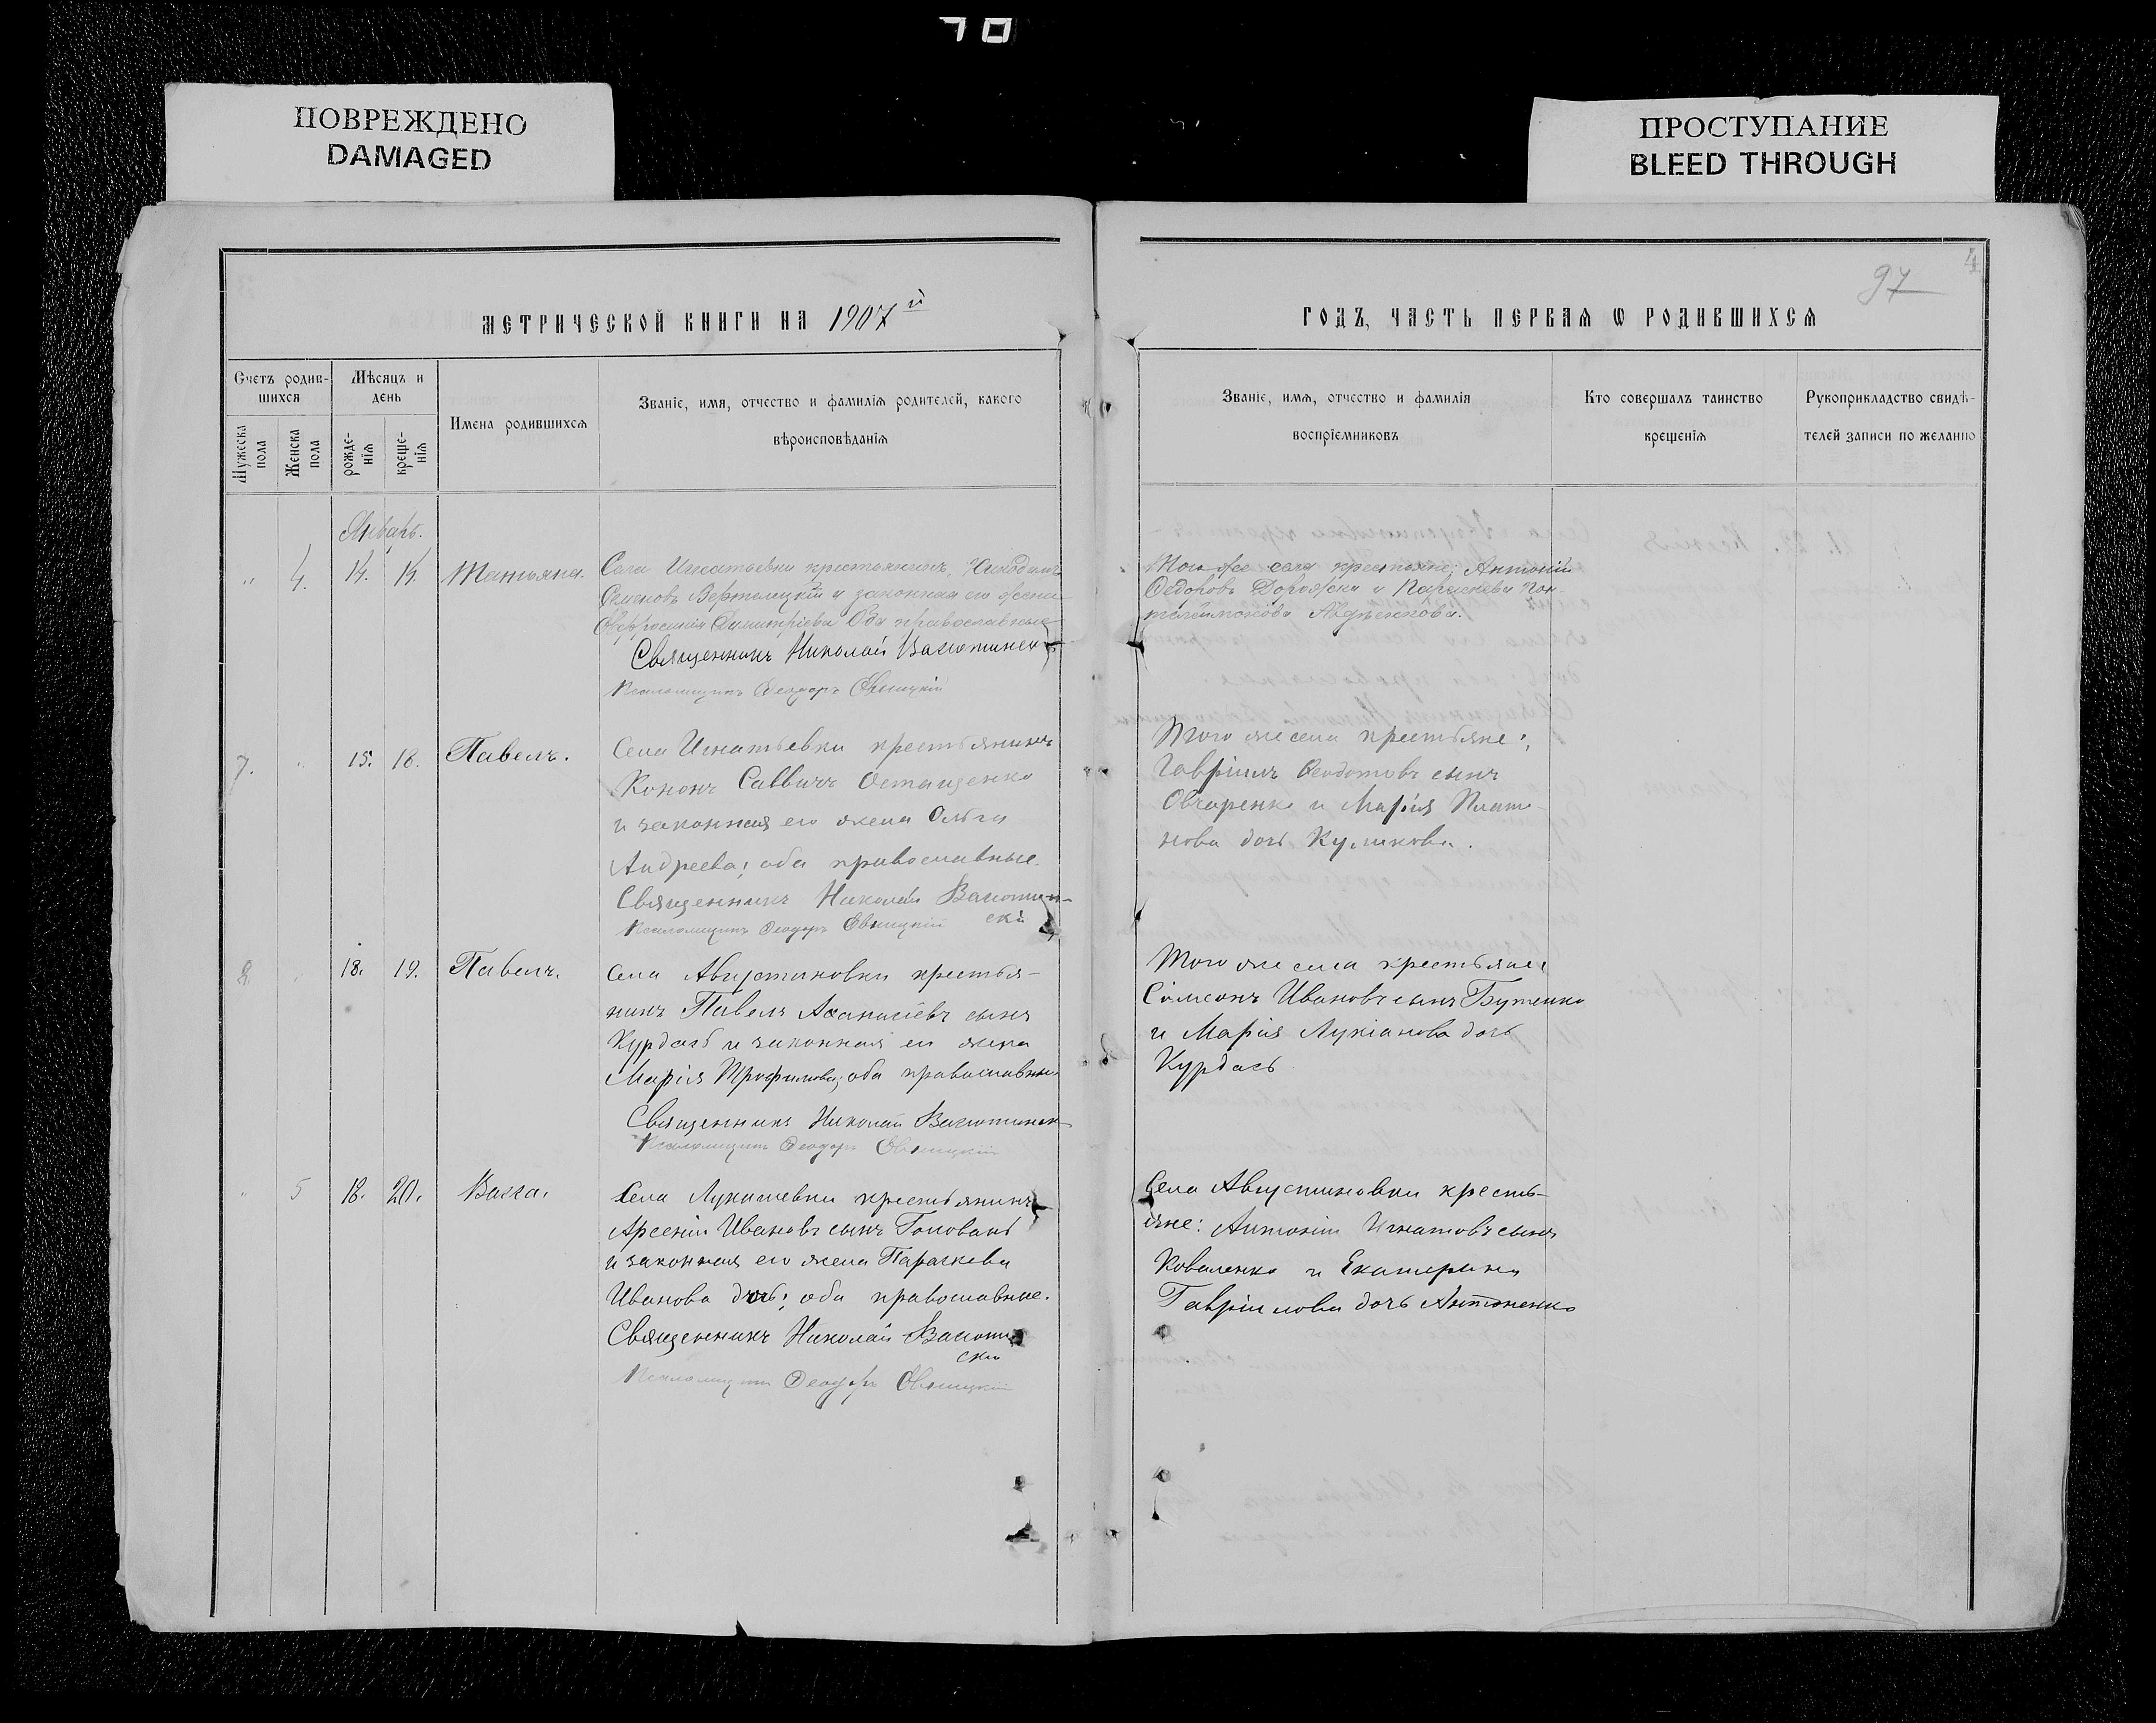 ПОВРЕЖДЕНО
DAMAGED
ПРОСТУПАНИЕ
BLEED THROUGH
4
97
МЕТРИЧЕСКОЙ КНИГИ НА 1907й
ГОДЪ, ЧАСТЬ ПЕРВАЯ Ѡ РОДИВШИХСЯ
Счетъ родив-
шихся
Мѣсяцъ и
день
Мужеска
пола
Женска
пола
рожде-
нія
креще-
нія
Имена родившихся
Званіе, имя, отчество и фамилія родителей, какого
вѣроисповѣданія
Званіе, имя, отчество и фамилія
воспріемниковъ
Кто совершалъ таинство
крещенія
Рукоприкладство свидѣ-
телей записи по желанію
Январь.
" 4. 14. 14. Татьяна.
Села Игнатьевки крестьянинъ, Никодимъ
Семеновъ и законная его жена
Евфросинія Димитріева Оба православные
Священникъ Николай
Псаломщикъ Ѳеодоръ
Того же села крестьяне: Антоній
Ѳедоровъ и Параскева Пан-
телеимонова
7. " 15. 18. Павелъ.
Села Игнатьевки крестьянинъ
Кононъ Саввичъ Остащенко
и законная его жена Ольга
Андреева; оба православные.
Священникъ Николай
Псаломщикъ Ѳеодоръ
Того же села крестьяне:
Гавріилъ Ѳеодотовъ сынъ
Овчаренко и Марія Плато-
нова дочь Куликова.
8. 18. 19. Павелъ.
Села Августиновки крестья-
нинъ Павелъ Аѳанасіевъ сынъ
Курдась и законная его жена
Марія Трофимова; оба православные
Священникъ Николай
Псаломщикъ Ѳеодоръ
Того же села крестьяне:
Сампсонъ Ивановъ сынъ Бутенко
и Марія Лукіанова дочь
Курдась
" 5 18. 20. Васса.
Села Лукашевки крестьянинъ
Арсеній Ивановъ сынъ Головань
и законная его жена Параскева
Иванова дочь; оба православные.
Священникъ Николай
Псаломщикъ Ѳеодоръ
Села Августиновки кресть-
яне: Антоній Игнатовъ сынъ
Коваленко и Екатерина
Гавріилова дочь Антоненко